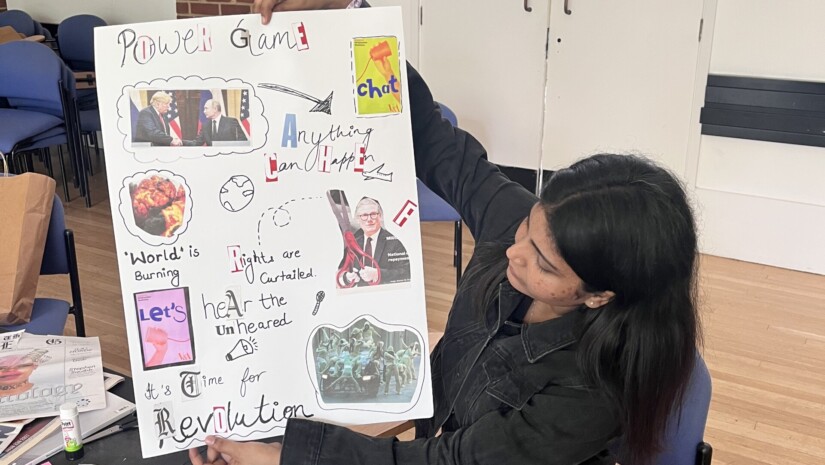 PoweR GamE
chat
Anything
Can HappEn
"World" is
Burning
Rights are
Curtailed.
LeT's
heAr the
UnHeared
It's Time for
RevOlution